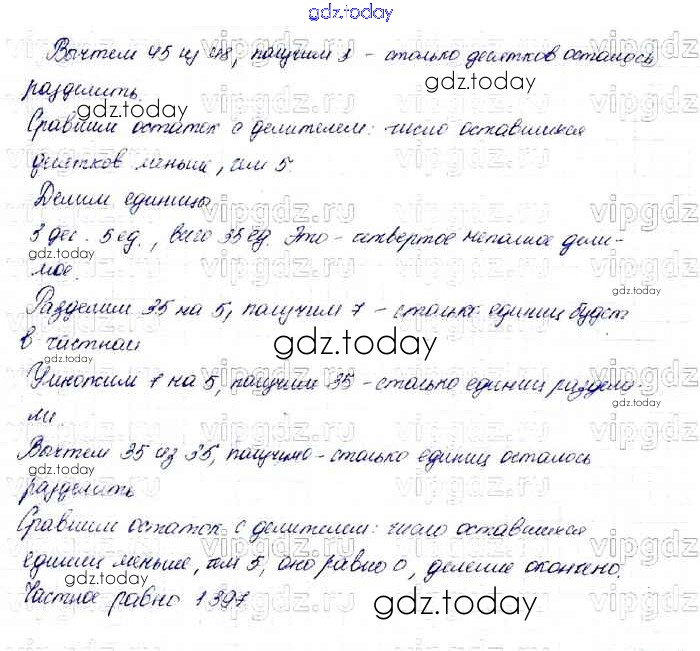 gdz.today
Вычтем 45 из 48, получим 3 - столько десятков осталось
gdz.today
разделить.
gdz.today
Сравним остаток с делителем: число оставшихся
десятков меньше, чем 5.
Делим единицы
3 дес. 5 ед., всего 35 ед. Это - четвертое неполное дели-
мое.
Разделим 35 на 5, получим 7 - столько единиц будет
gdz.today
в частном
gdz.today
gdz.today
Умножим 7 на 5, получим 35 - столько единиц раздели-
ли.
Вычтем 35 из 35, получим 0 - столько единиц осталось
gdz.today
gdz.today
разделить
Сравним остаток с делителем: число оставшихся
единиц меньше, чем 5, оно равно 0, деление окончено.
gdz.today
Частное равно 1397
gdz.today